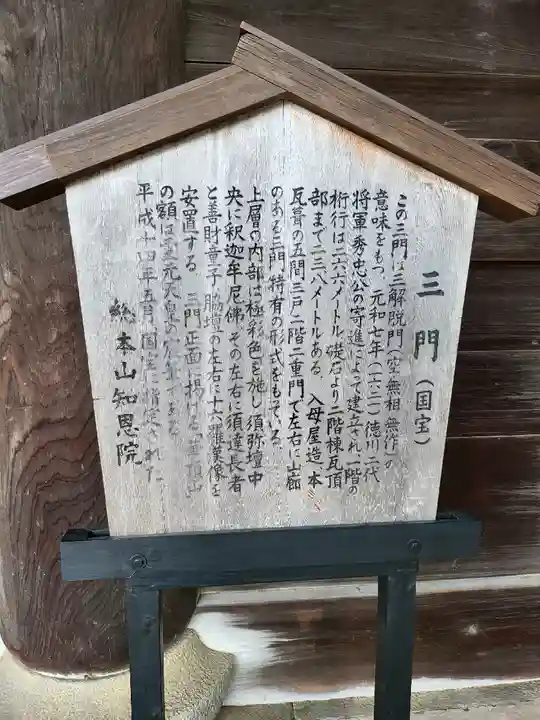 三門（国宝）
この三門は三解脱門（空 無相 無作）の
意味をもつ、元和七年（一六二一）徳川二代
将軍秀忠公の寄進によって建立され、一階の
桁行は二六・六メートル 礎石より二階棟瓦頂
部まで二三・八メートルある。入母屋造、本
瓦葺の五間三戸二階二重門で左右に山廊
のある三門特有の形式をもっている。
上層の内部は極彩色を施し 須弥壇中
央に釈迦牟尼佛 その左右に須達長者
と善財童子 脇壇の左右に十六羅漢像を
安置する。三門正面に掲げる「華頂山」
の額は霊元天皇の宸筆である。
平成十四年五月「国宝」に指定された
総本山知恩院